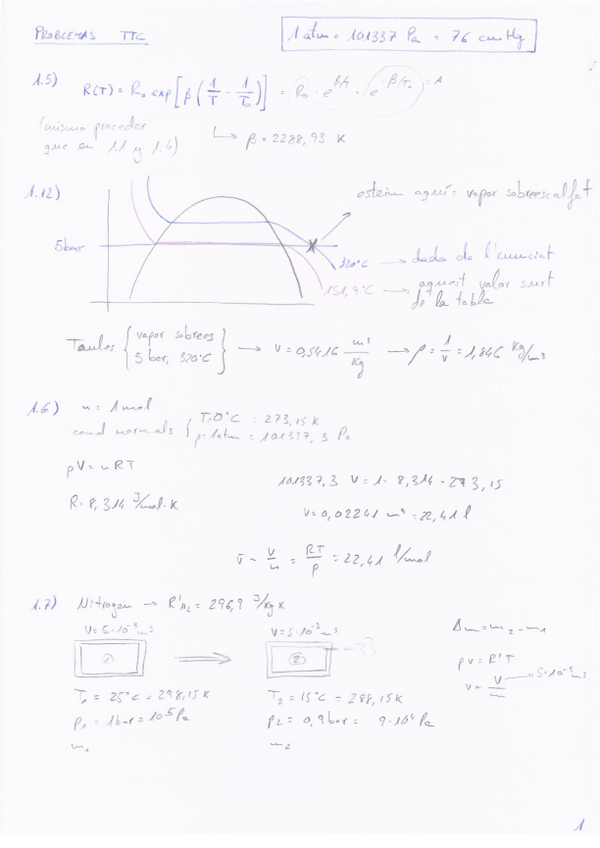 PROBLEMAS TTC
1 atm = 101337 Pa = 76 cm Hg
1.5) R(T) = R₀ exp[β(1/T - 1/T₀)] = R₀ · e^(β/T) · e^(-β/T₀) = A
(mismo proceder
que en 1.1 y 1.4)
↳ β = 2288,93 K
1.12)
esteim aquí: vapor sobreescalfat
5 bar
320°C → dada de l'enunciat
151,9°C → aquest valor surt
de la tabla
Taules { vapor sobrees
5 bar, 320°C } → v = 0,5416 m³/Kg → ρ = 1/v = 1,846 Kg/m³
1.6) n = 1 mol
cond normals { T: 0°C = 273,15 K
p = 1 atm = 101337,3 Pa
pV = nRT
R = 8,314 J/mol·K
101337,3 V = 1 · 8,314 · 273,15
V = 0,02241 m³ = 22,41 l
v̄ = V/n = RT/p = 22,41 l/mol
1.7) Nitrogen → R'N₂ = 296,9 J/kg K
V = 5·10⁻³ m³
V = 5·10⁻³ m³
1
2
T₁ = 25°C = 298,15 K
T₂ = 15°C = 288,15 K
p₁ = 1 bar = 10⁵ Pa
p₂ = 0,9 bar = 9·10⁴ Pa
m₁
m₂
Δm = m₂ - m₁
pv = R'T
v = V/m → 5·10⁻³ m³
1